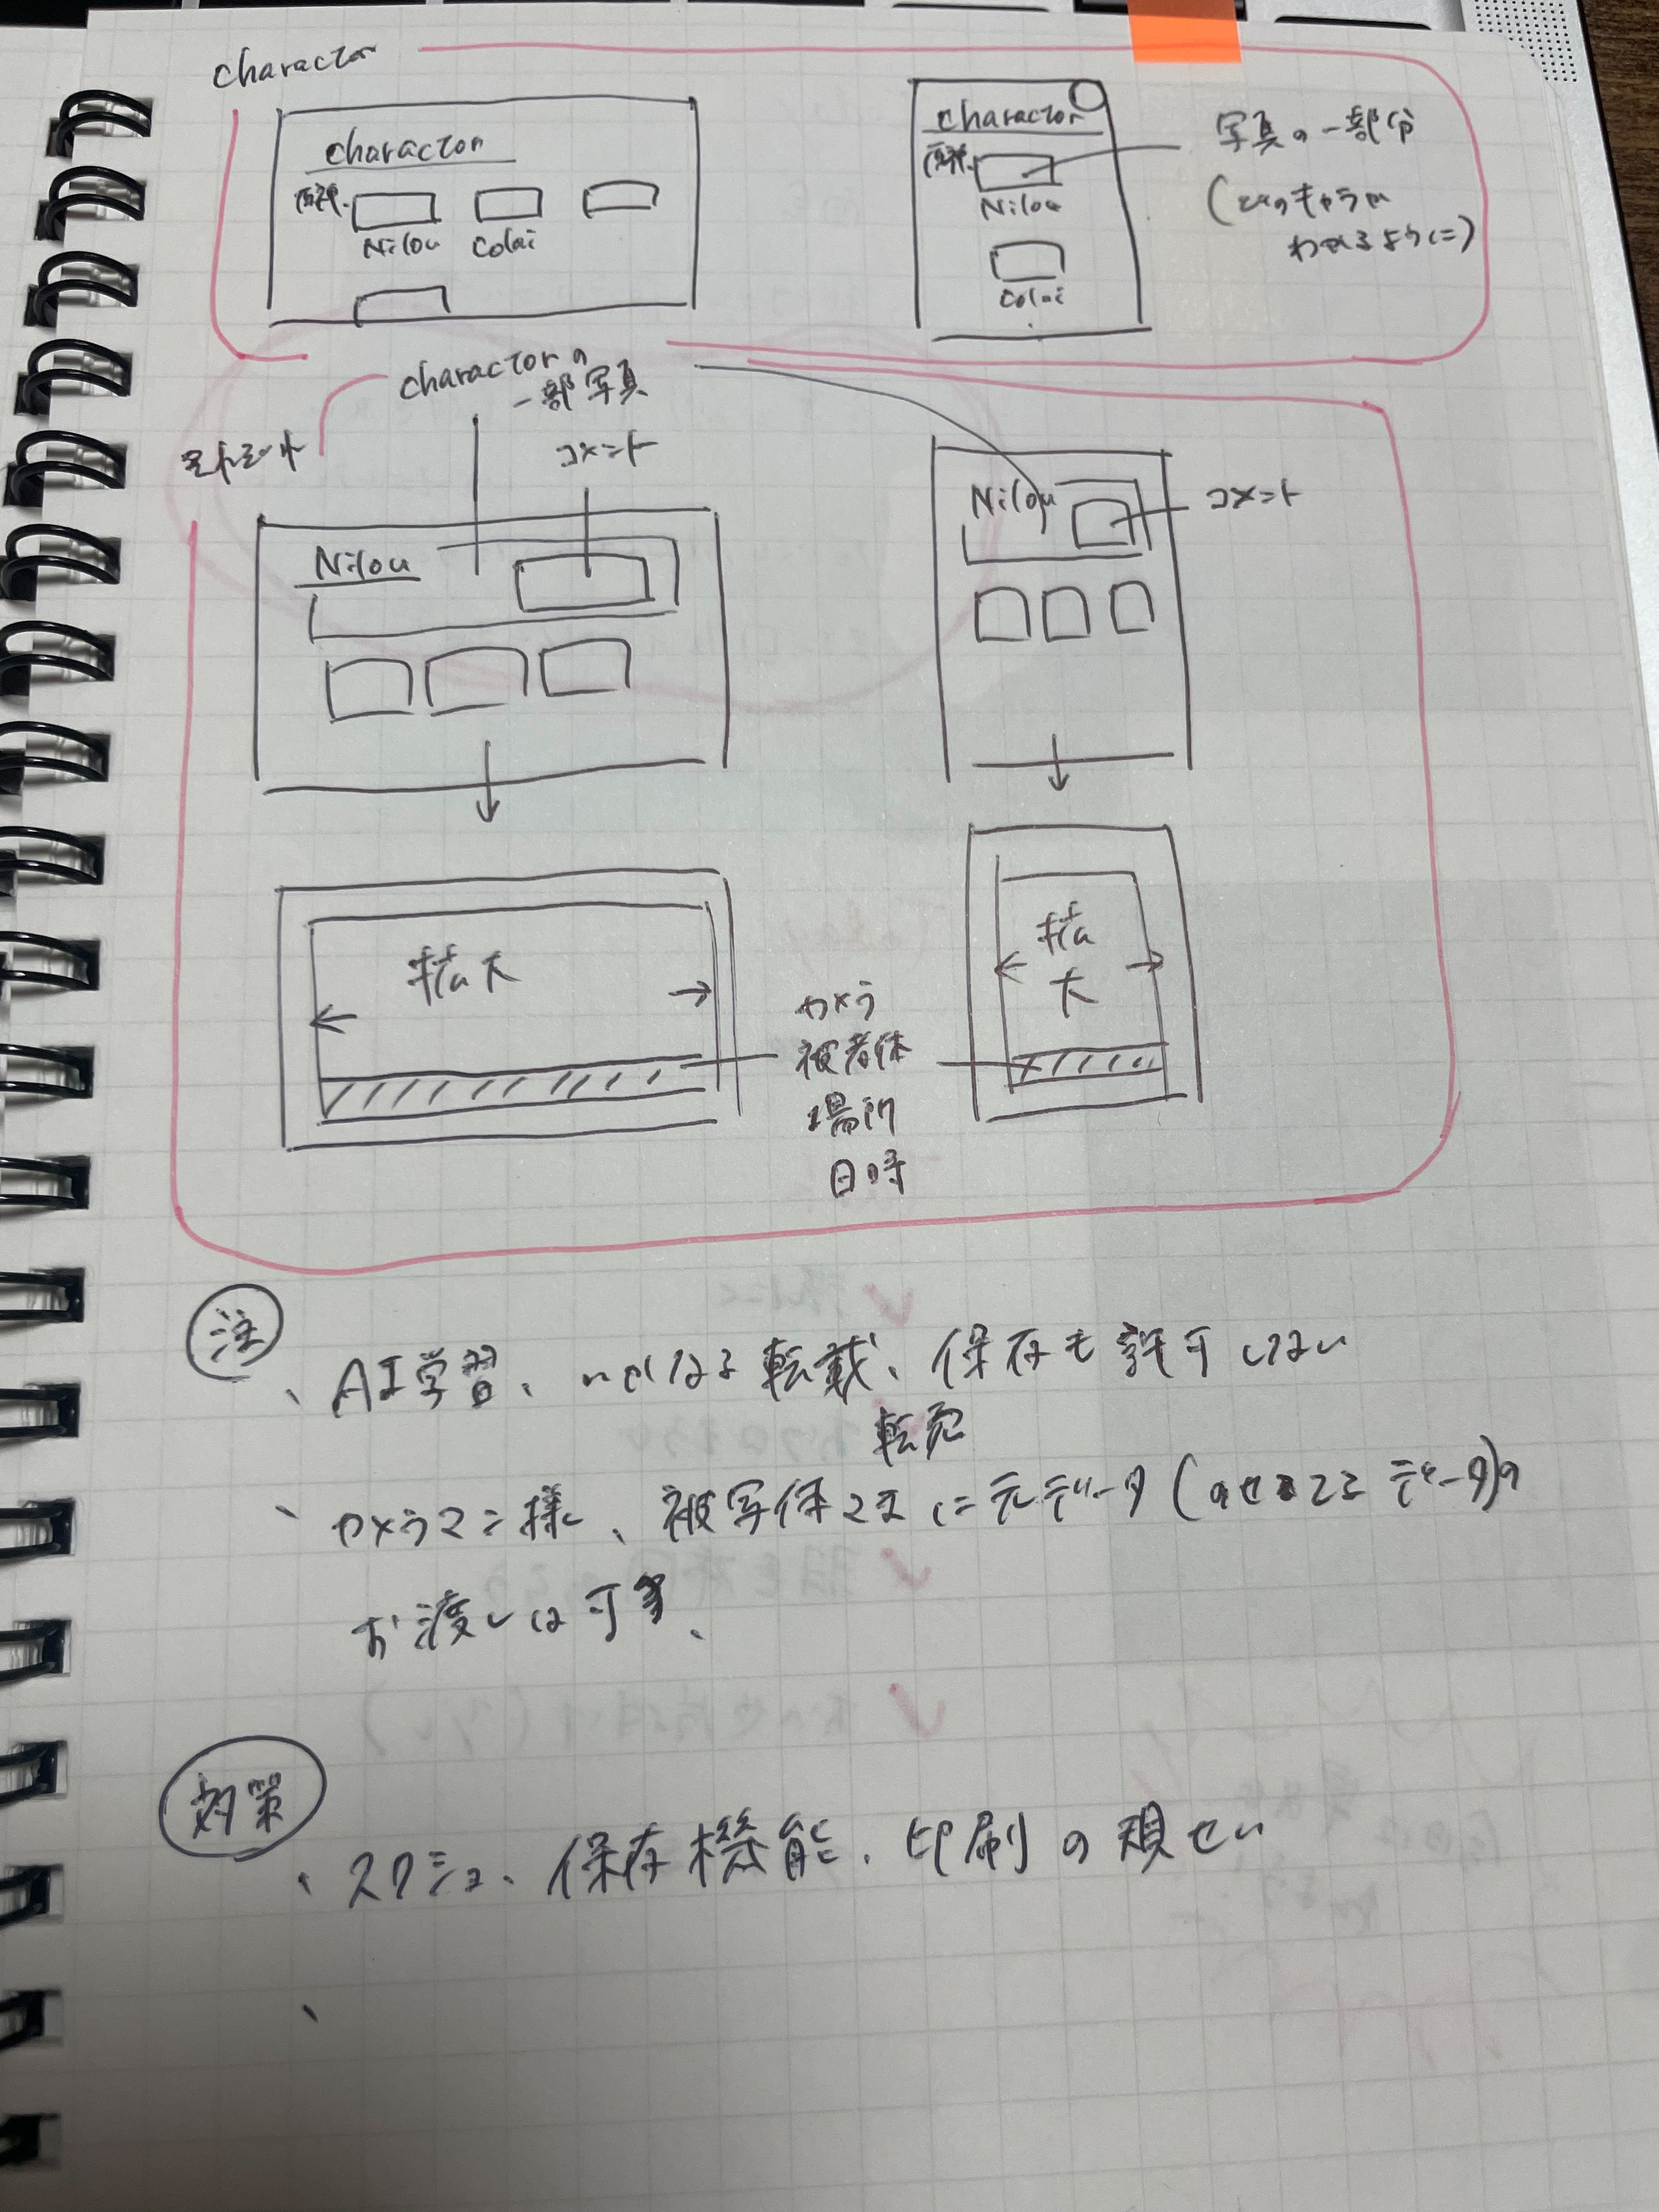 charactor
charactor
原神.
Nilou
Colai
charactor
原神.
Nilou
Colai
写真の一部分
(どのキャラか
わかるように)
charactorの
一部写真
コメント
Nilou
Nilou
コメント
拡大
拡
大
カメラ
場所
日時
注
、AI学習、いかなる転載、保存も許可しない
転売
、カメラマン様、被写体さまに元データ(のせてるデータ)の
お渡しは可
対策
、スクショ、保存機能、印刷の規せい
、